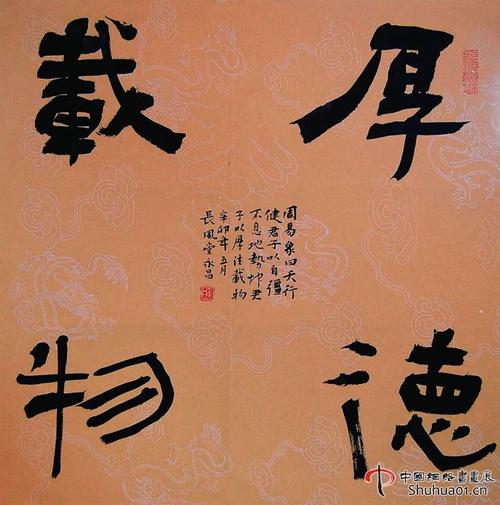 厚德
載物
周易象曰天行
健君子以自彊
不息地勢坤君
子以厚德載物
辛卯年五月
長風堂永昌
中國網絡書畫展
Shuhua01.cn